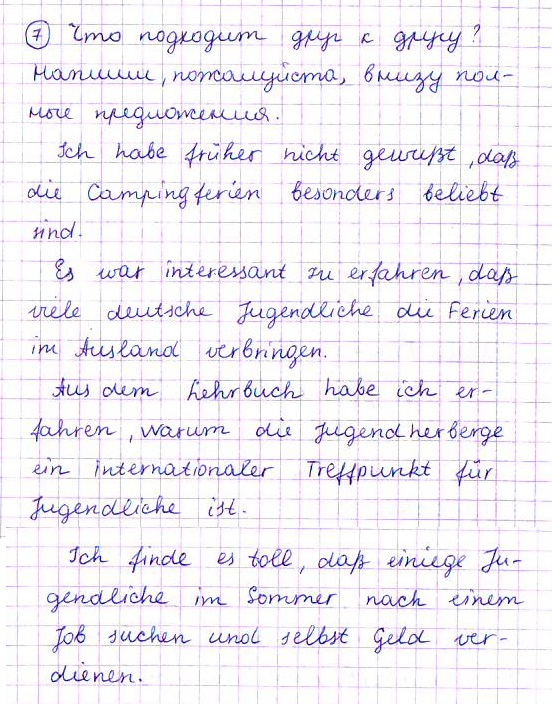 ⑦ Что подходит друг к другу?
Напиши, пожалуйста, внизу пол-
ные предложения.
Ich habe früher nicht gewußt, daß
die Campingferien besonders beliebt
sind.
Es war interessant zu erfahren, daß
viele deutsche Jugendliche die Ferien
im Ausland verbringen.
Aus dem Lehrbuch habe ich er-
fahren, warum die Jugendherberge
ein internationaler Treffpunkt für
Jugendliche ist.
Ich finde es toll, daß einiege Ju-
gendliche im Sommer nach einem
Job suchen und selbst Geld ver-
dienen.